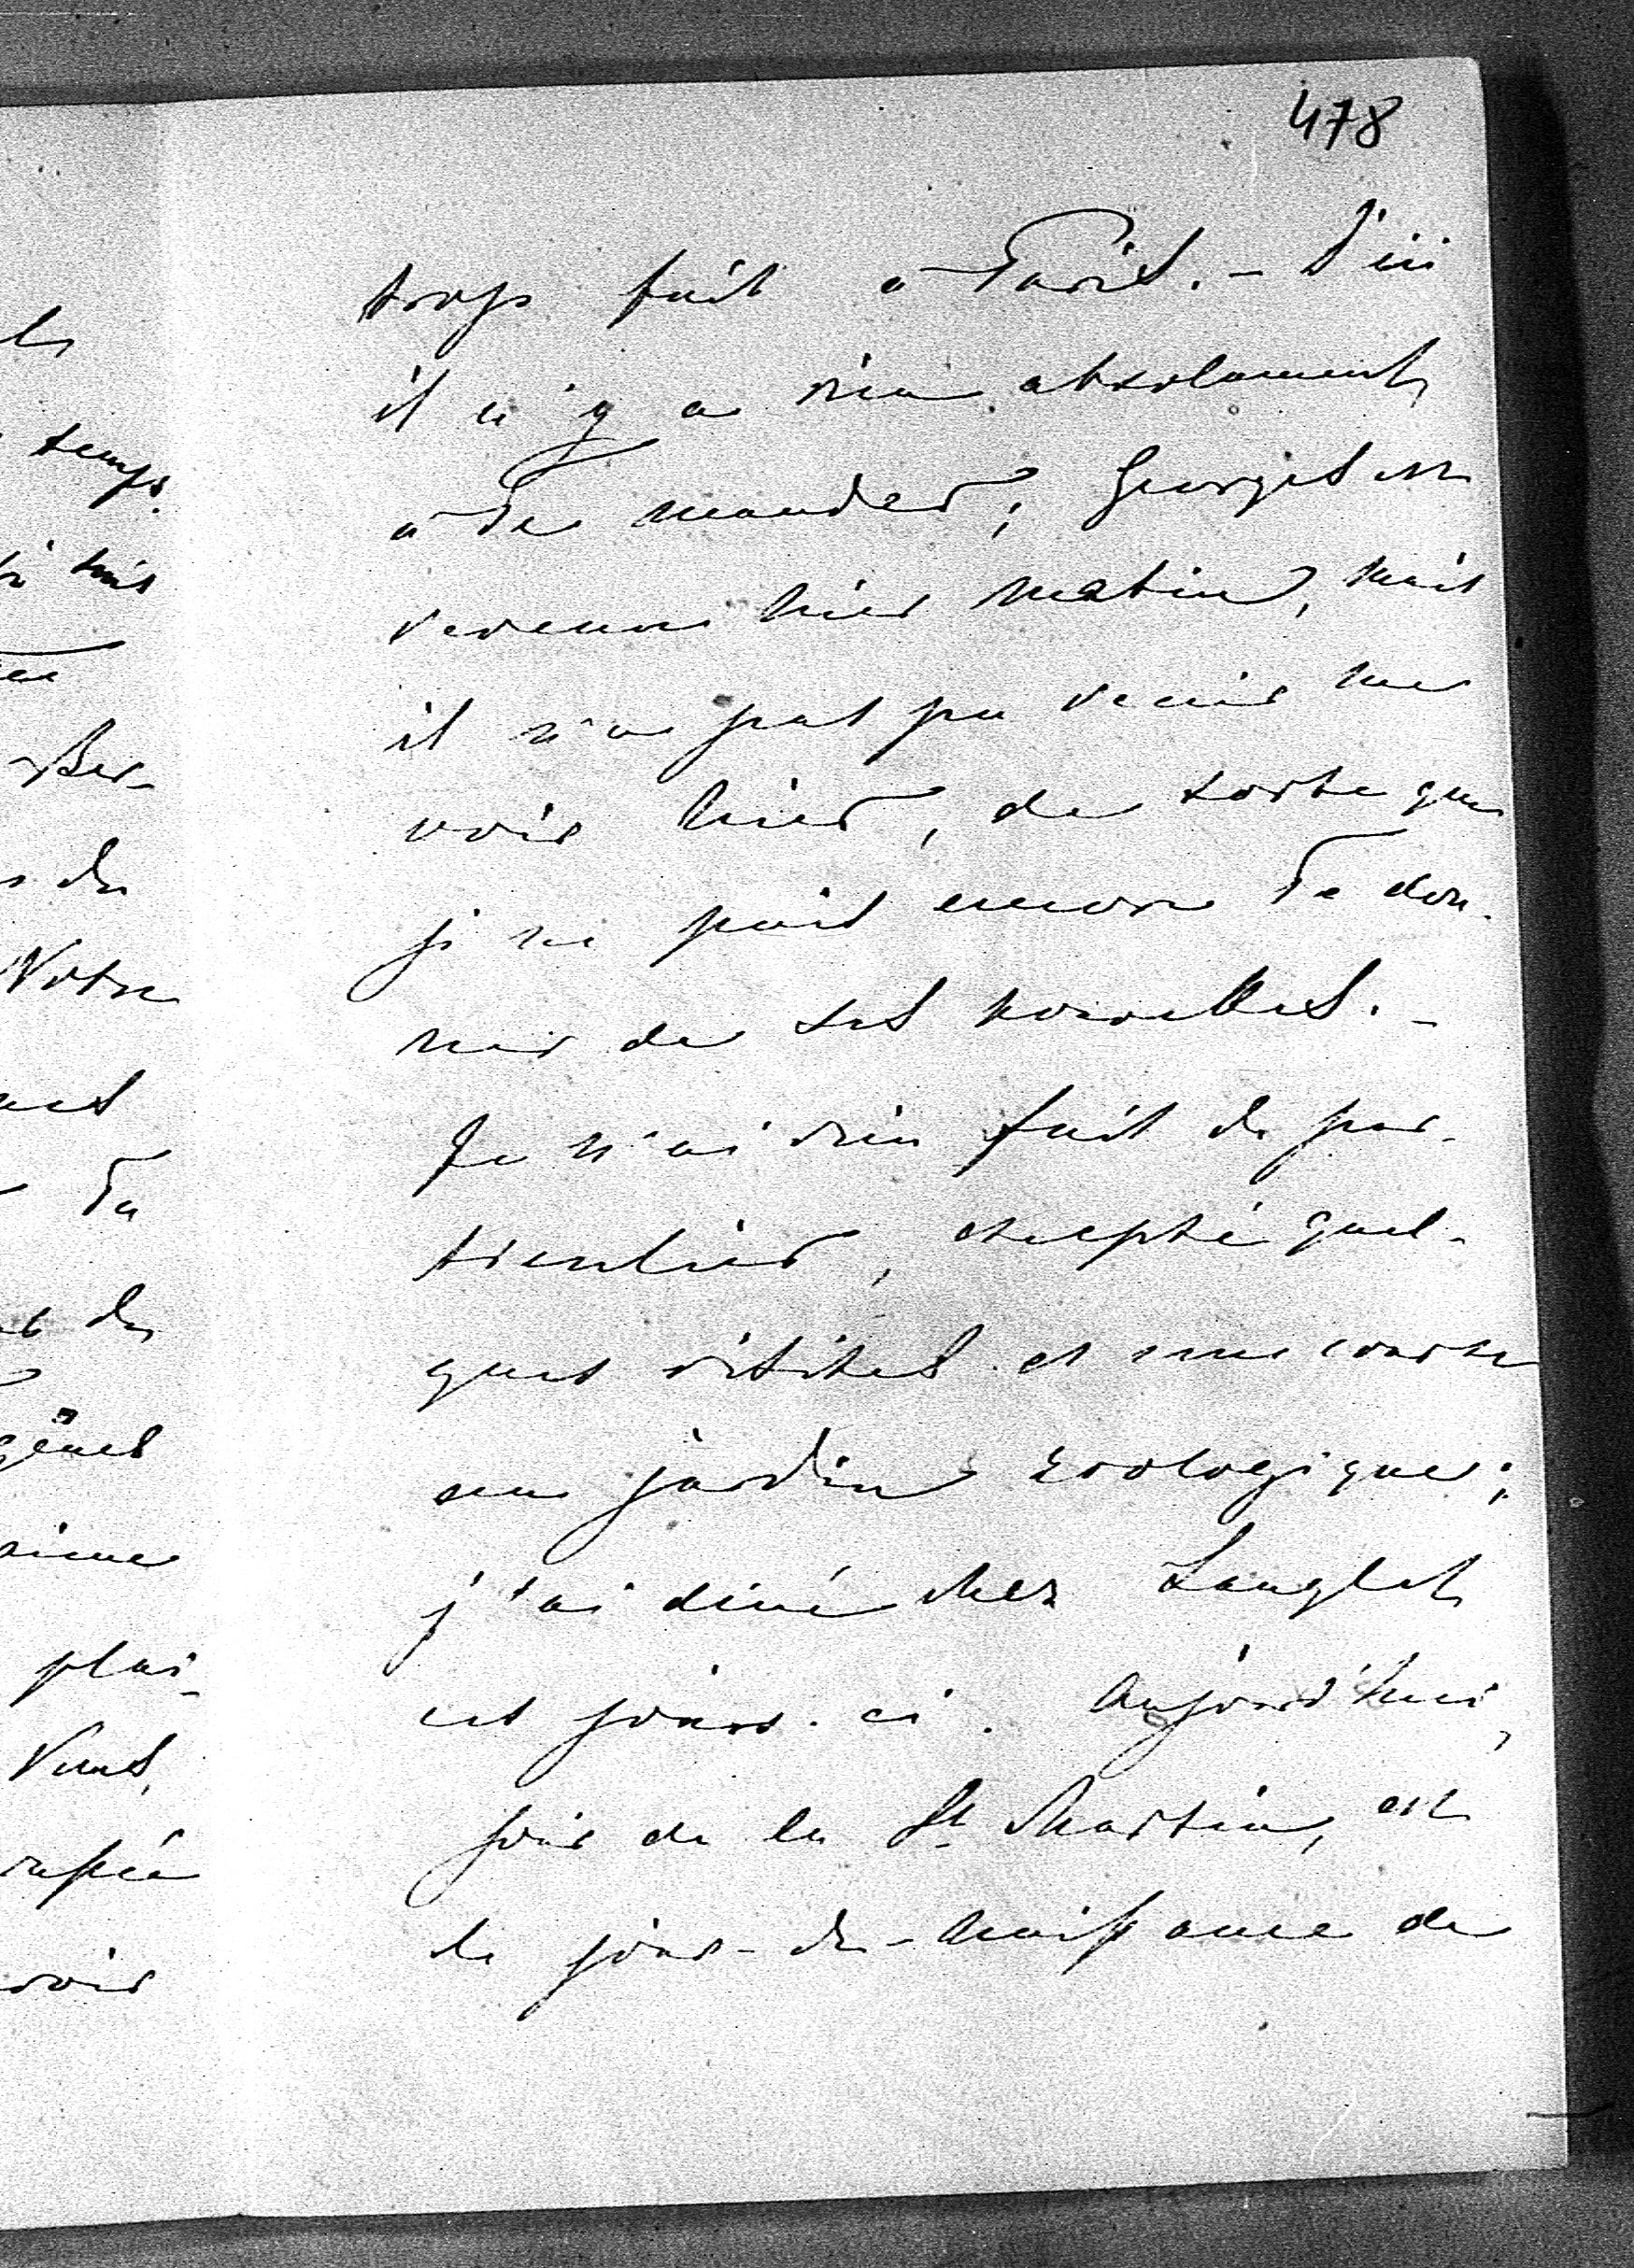 478
trop fait à Paris. - D'ici
il n'y a rien absolument
à Te mander; Georges est
revenu hier matin, mais
il n'a pas pu venir me
voir hier, de sorte que
je ne puis encore Te don-
ner de ses nouvelles. -
Je n'ai rien fait de par-
ticulier, excepté quel-
ques visites et une course
au jardin zoologique;
j'ai diné chez Langlet
ces jours-ci. Aujourd'hui,
jour de la St Martin, est
le jour-de-naissance de
temps.
Ber-
du
Votre
Tu
du
gènes
plai-
Vous,
voir